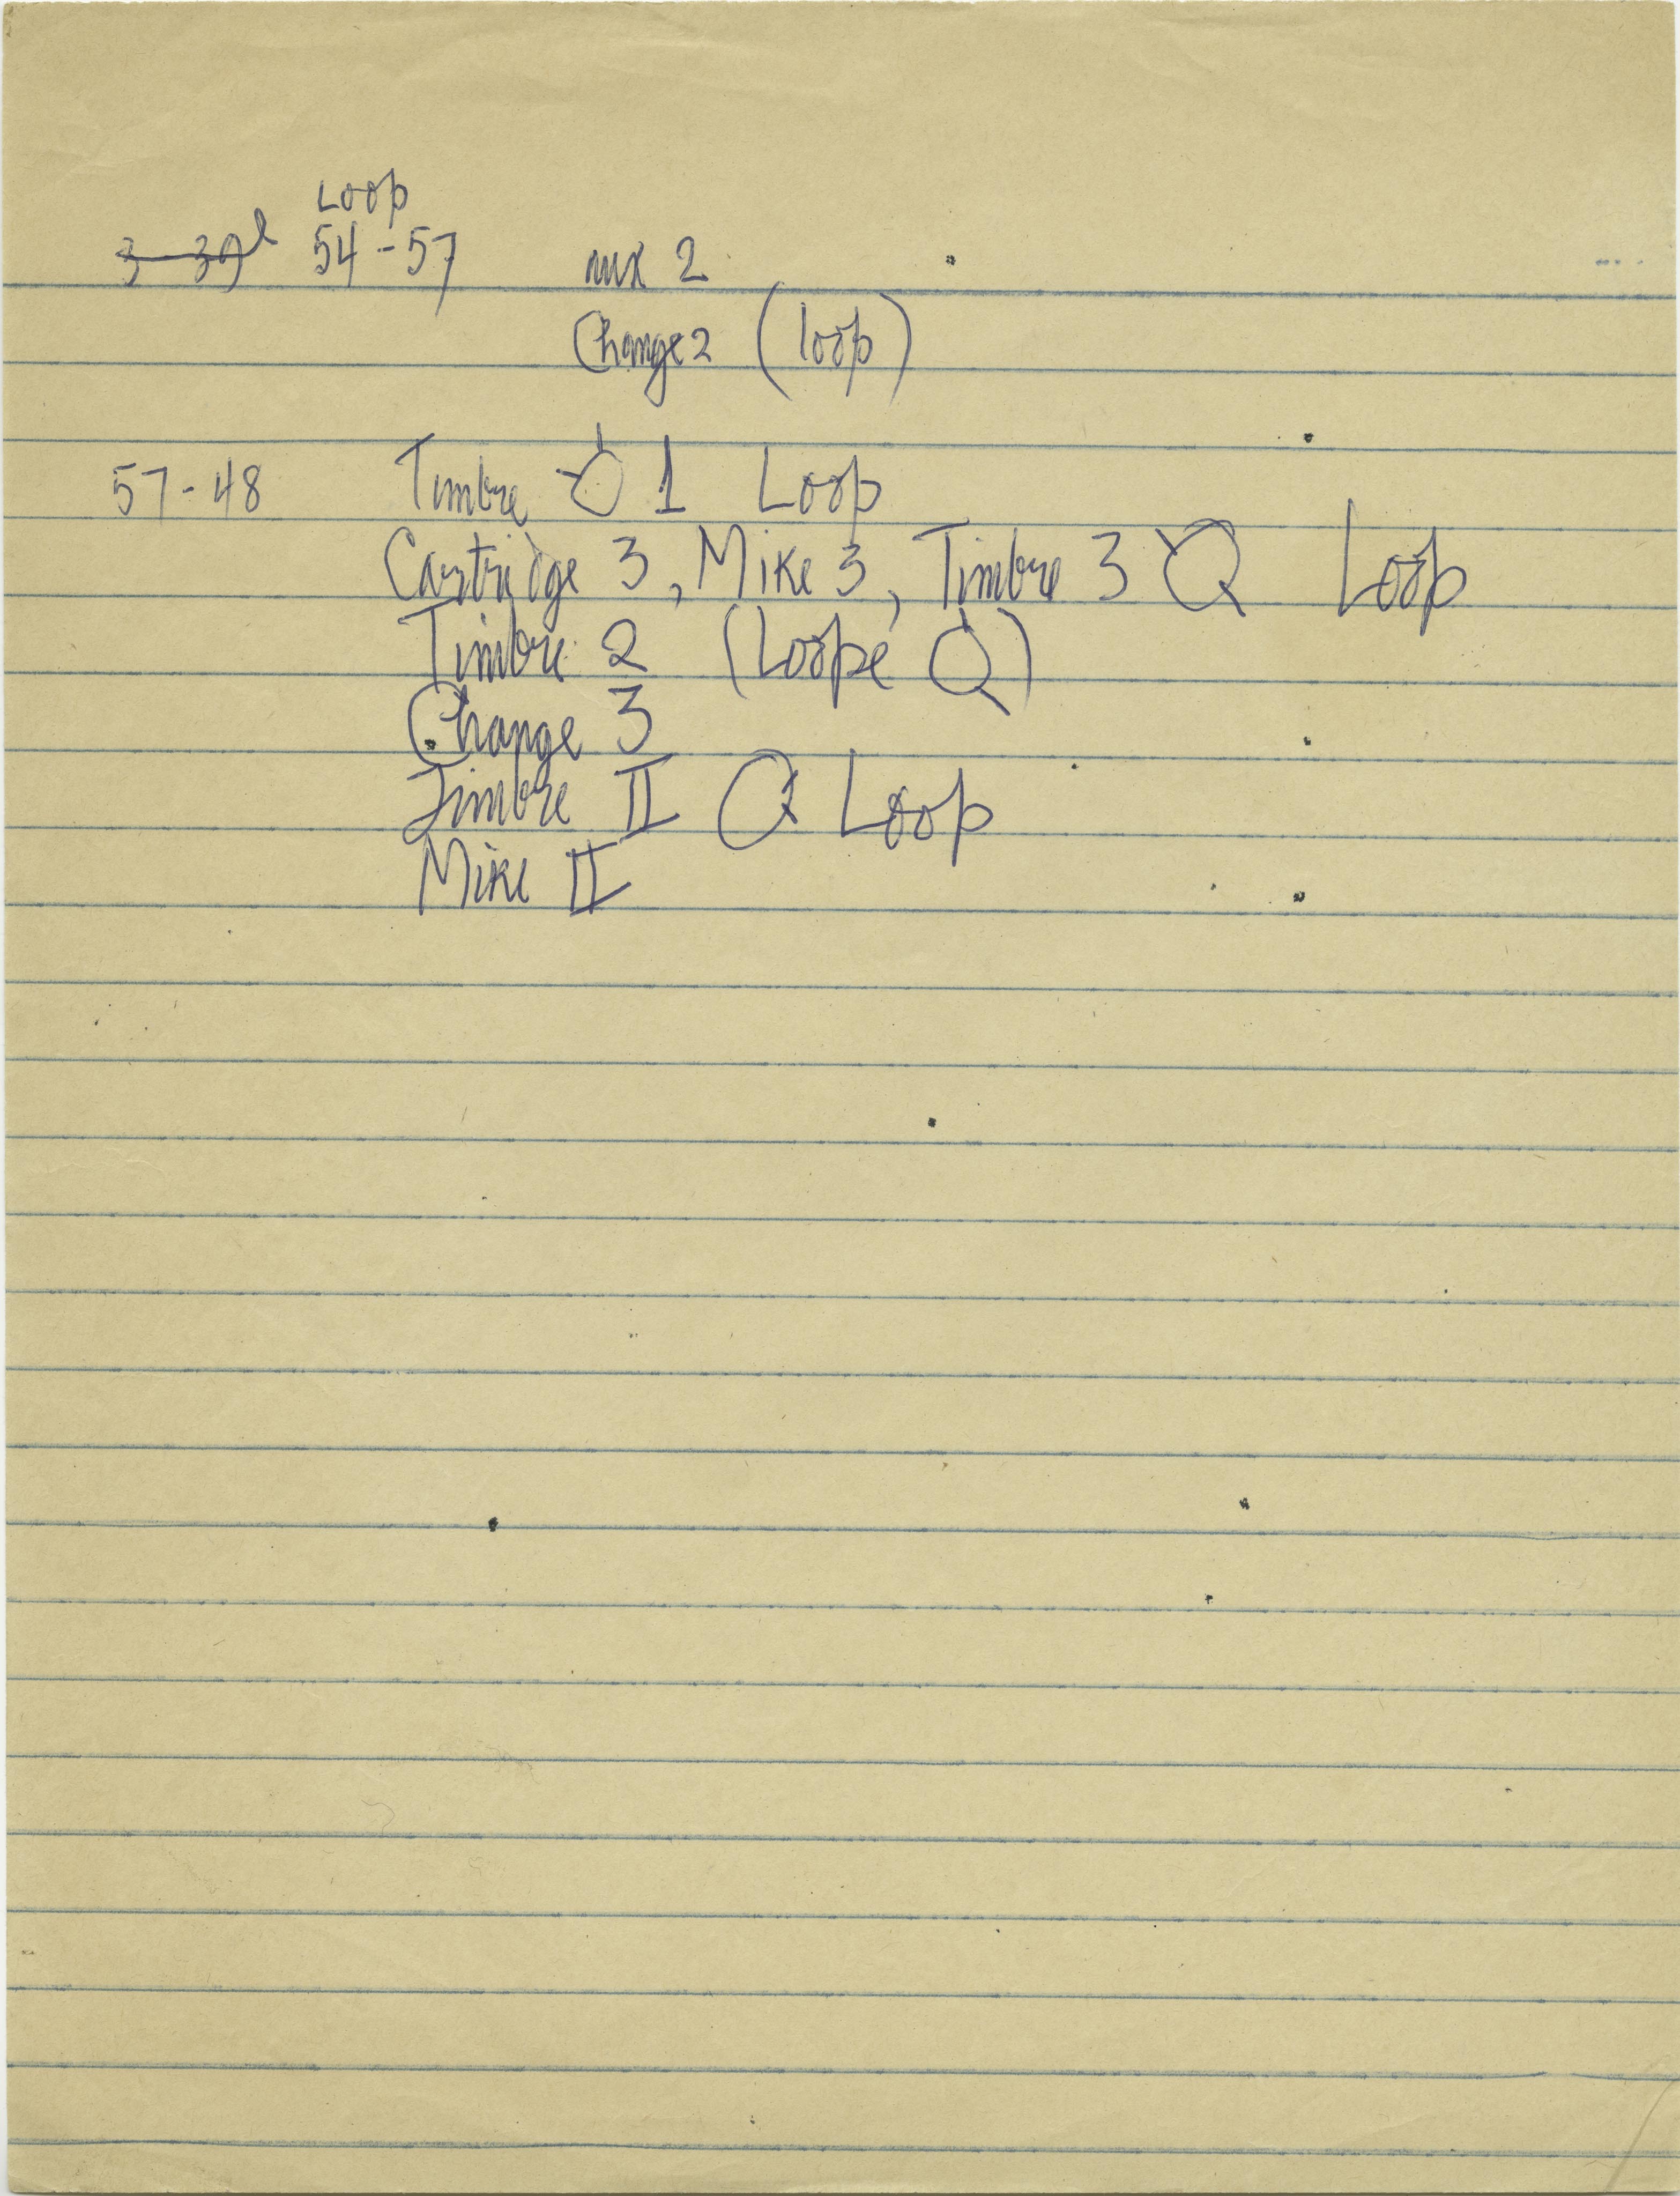 Loop
3-39 54-57 mix 2
Change 2 (loop)
57-48 Timbre 1 Loop
Cartridge 3, Mike 3, Timbre 3 Loop
Timbre 2 (Loope)
Change 3
Timbre II Loop
Mike II